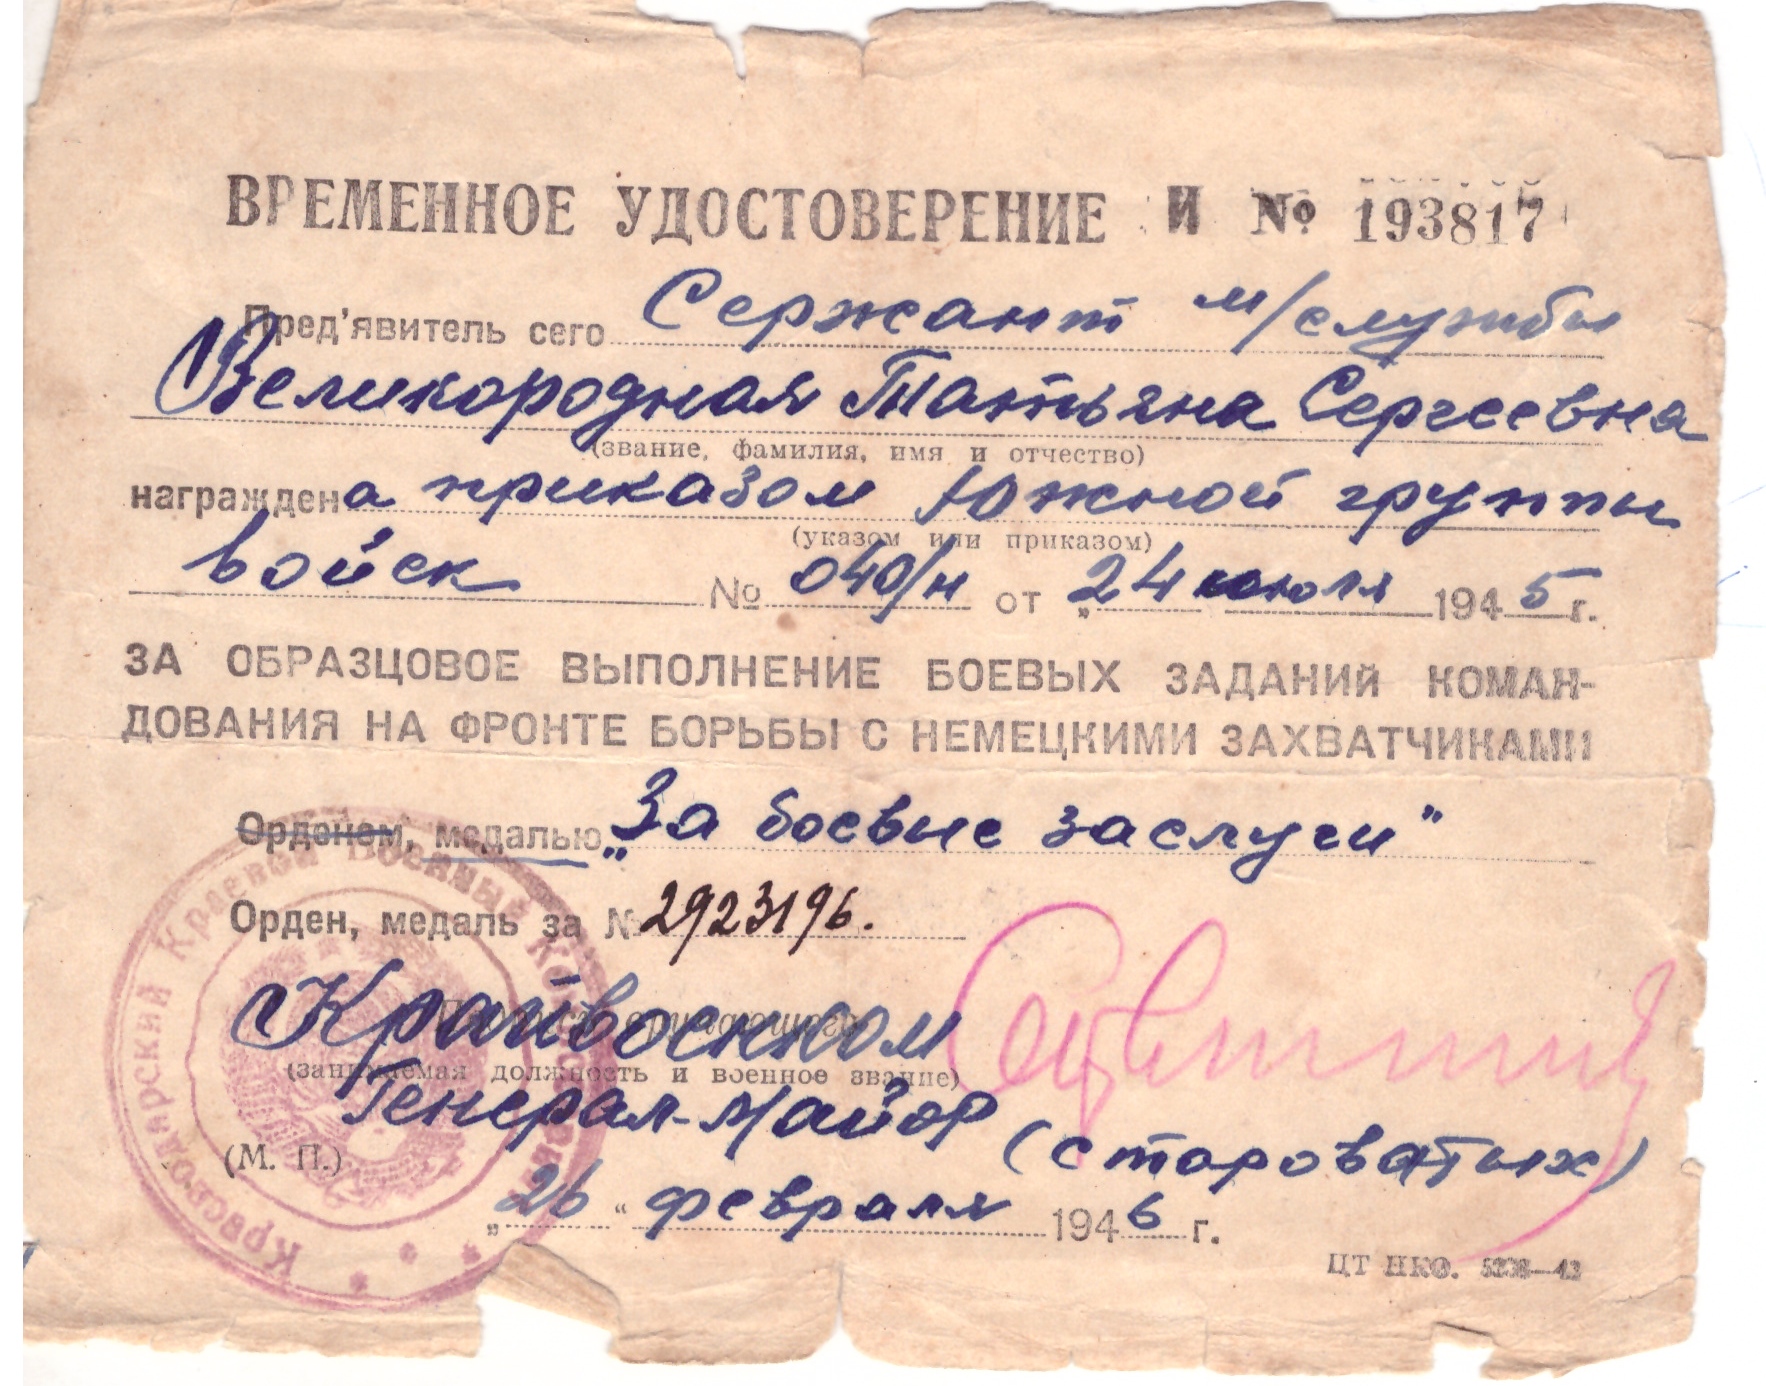 ВРЕМЕННОЕ УДОСТОВЕРЕНИЕ И № 193817
Пред'явитель сего Сержант м/службы
Великородная Татьяна Сергеевна
(звание, фамилия, имя и отчество)
награждена приказом Южной группы
(указом или приказом)
войск № 040/н от „24 июля 1945 г.
ЗА ОБРАЗЦОВОЕ ВЫПОЛНЕНИЕ БОЕВЫХ ЗАДАНИЙ КОМАН-
ДОВАНИЯ НА ФРОНТЕ БОРЬБЫ С НЕМЕЦКИМИ ЗАХВАТЧИКАМИ
Орденом, медалью „За боевые заслуги"
Орден, медаль за № 2923196.
Крайвоенком
(занимаемая должность и военное звание)
Генерал-майор (Староватых)
(М. П.)
„26 “ февраля 1946 г.
ЦТ НКО.
Краснодарский Краевой Военный